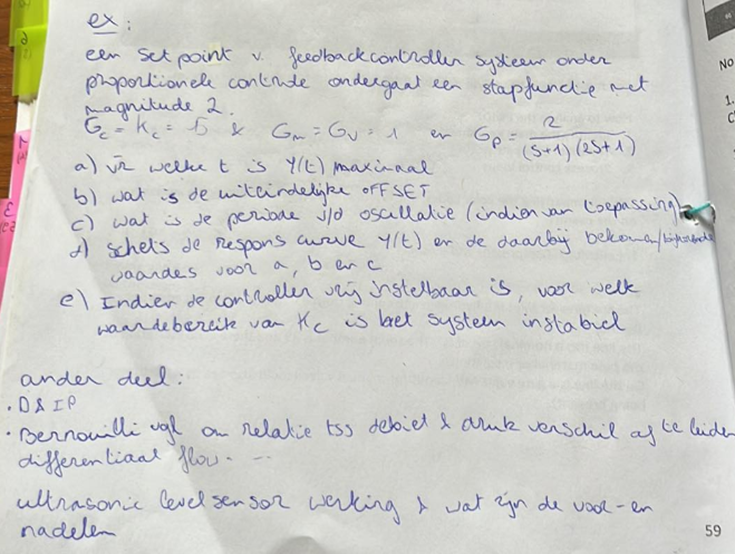 ex:
een set point v. feedbackcontroller systeem onder
proportionele controle ondergaat een stapfunctie met
magnitude 2.
Gc = Kc = 5 & Gm = Gv = 1 en Gp = 2 / (s+1)(2s+1)
a) vr welke t is Y(t) maximaal
b) wat is de uiteindelijke OFFSET
c) wat is de periode v/d oscillatie (indien van toepassing)
d) schets de respons curve Y(t) en de daarbij bekomen/
waardes voor a, b en c
e) Indien de controller vrij instelbaar is, voor welk
waardebereik van Kc is het systeem instabiel
ander deel:
. D & IP
. Bernouilli vgl om relatie tss debiet & druk verschil af te leiden
differentiaal flow. - --
ultrasonic level sensor werking & wat zijn de voor- en
nadelen
NO
1.
C
59